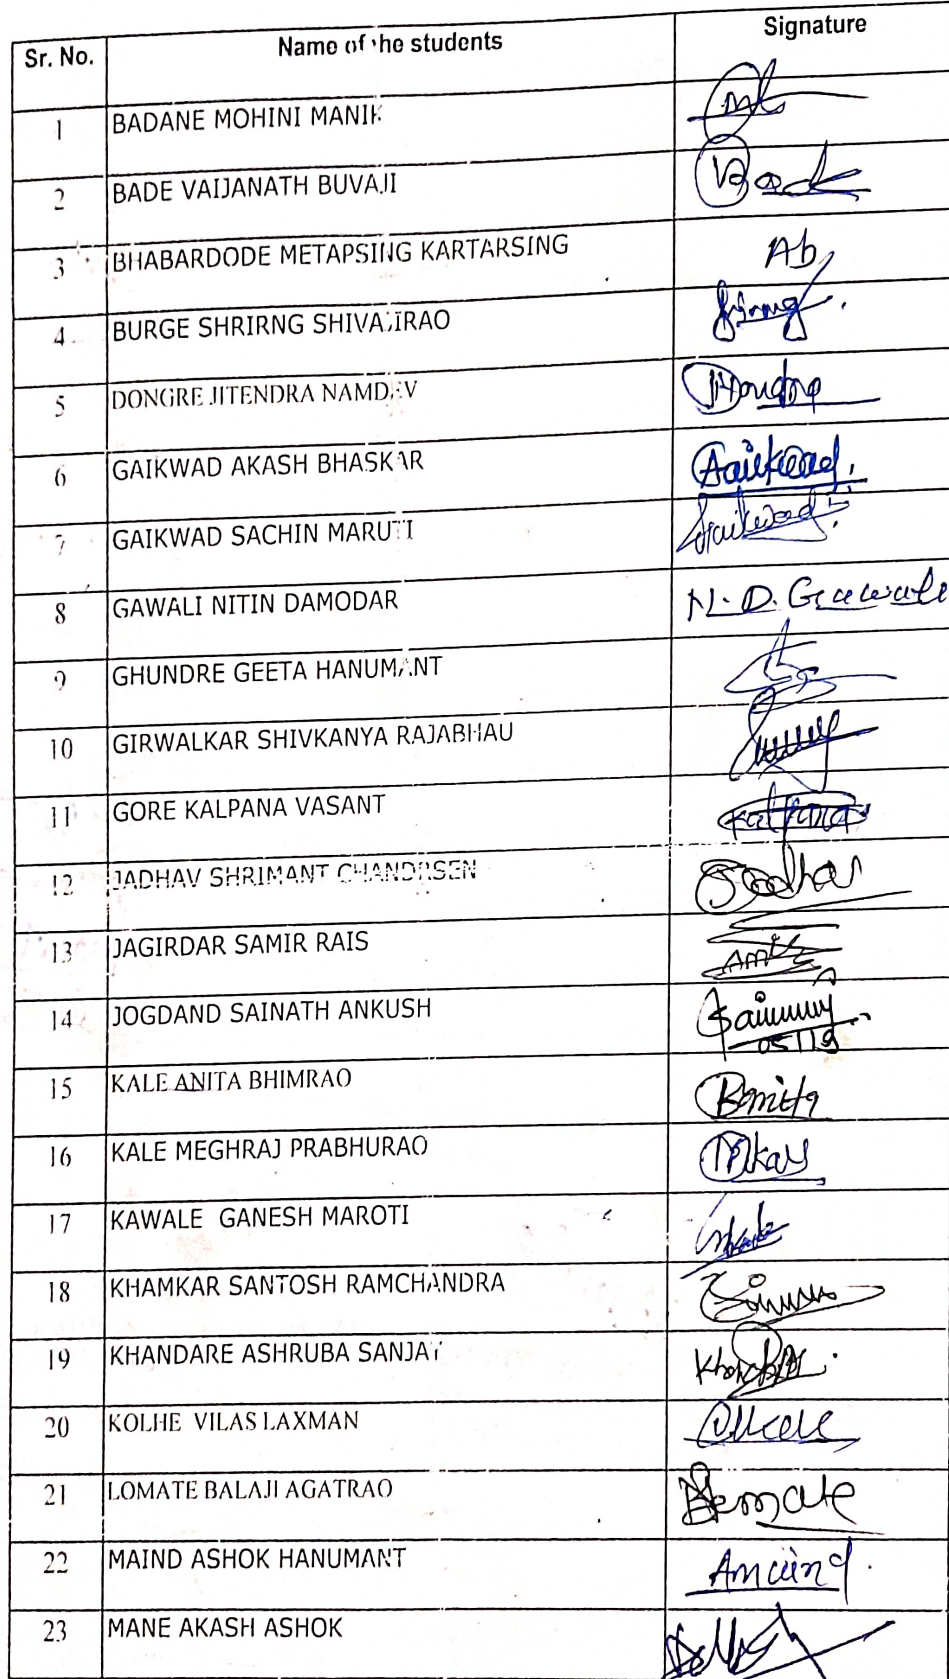 Sr. No. Name of the students Signature
1 BADANE MOHINI MANIK
2 BADE VAIJANATH BUVAJI
3 BHABARDODE METAPSING KARTARSING Ab
4 BURGE SHRIRNG SHIVAJIRAO
5 DONGRE JITENDRA NAMDEV
6 GAIKWAD AKASH BHASKAR Gaikwad.
7 GAIKWAD SACHIN MARUTI Gaikwad
8 GAWALI NITIN DAMODAR N. D. Gawale
9 GHUNDRE GEETA HANUMANT
10 GIRWALKAR SHIVKANYA RAJABHAU
11 GORE KALPANA VASANT Kalpana
12 JADHAV SHRIMANT CHANDRSEN
13 JAGIRDAR SAMIR RAIS
14 JOGDAND SAINATH ANKUSH
15 KALE ANITA BHIMRAO
16 KALE MEGHRAJ PRABHURAO
17 KAWALE GANESH MAROTI
18 KHAMKAR SANTOSH RAMCHANDRA
19 KHANDARE ASHRUBA SANJAY
20 KOLHE VILAS LAXMAN
21 LOMATE BALAJI AGATRAO
22 MAIND ASHOK HANUMANT Amaind.
23 MANE AKASH ASHOK